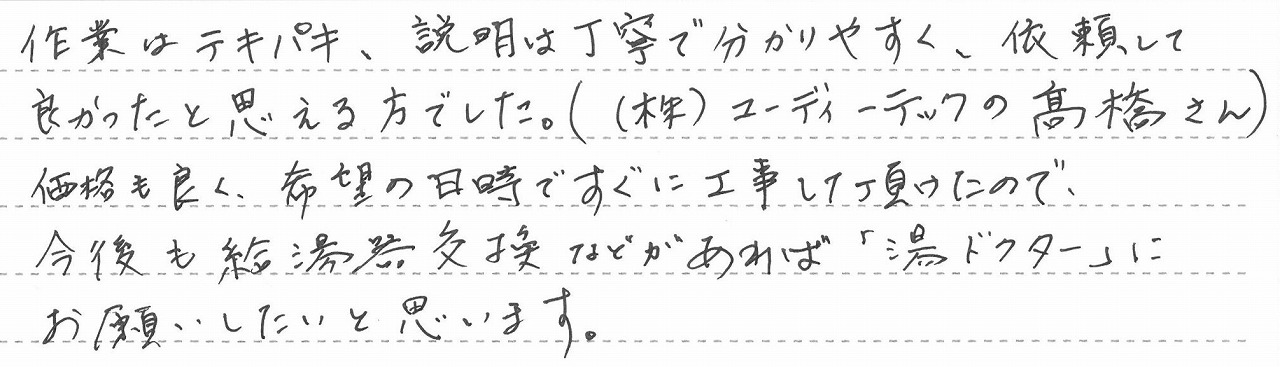 作業はテキパキ、説明は丁寧で分かりやすく、依頼して
良かったと思える方でした。(（株）ユーディーテックの髙橋さん)
価格も良く、希望の日時ですぐに工事して頂けたので、
今後も給湯器交換などがあれば「湯ドクター」に
お願いしたいと思います。